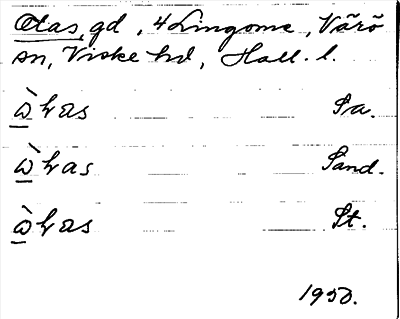 Olas, gd, 4 Lingome, Värö
sn, Viske hd, Hall. l.
ὼhas Sa.
ὼhas Sand.
ὼhas St.
1950.